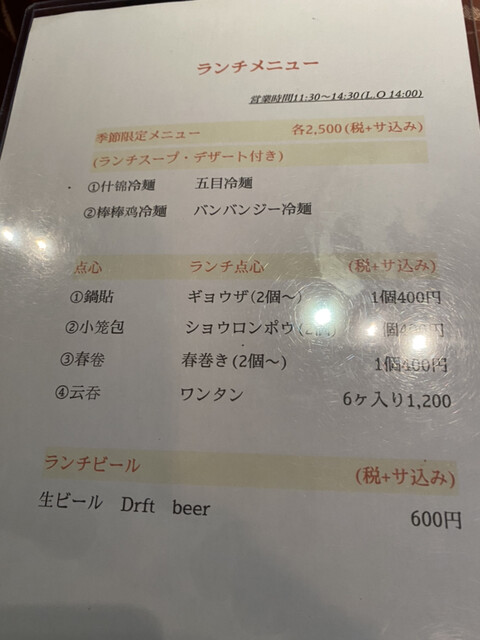 ランチメニュー
営業時間11:30～14:30(L.O 14:00)
季節限定メニュー 各2,500(税+サ込み)
(ランチスープ・デザート付き)
①什锦冷麺 五目冷麺
②棒棒鸡冷麺 バンバンジー冷麺
点心 ランチ点心 (税+サ込み)
①鍋貼 ギョウザ(2個～) 1個400円
②小笼包 ショウロンポウ(2個)
③春卷 春巻き(2個～) 1個400円
④云吞 ワンタン 6ヶ入り1,200
ランチビール (税+サ込み)
生ビール Drft beer 600円